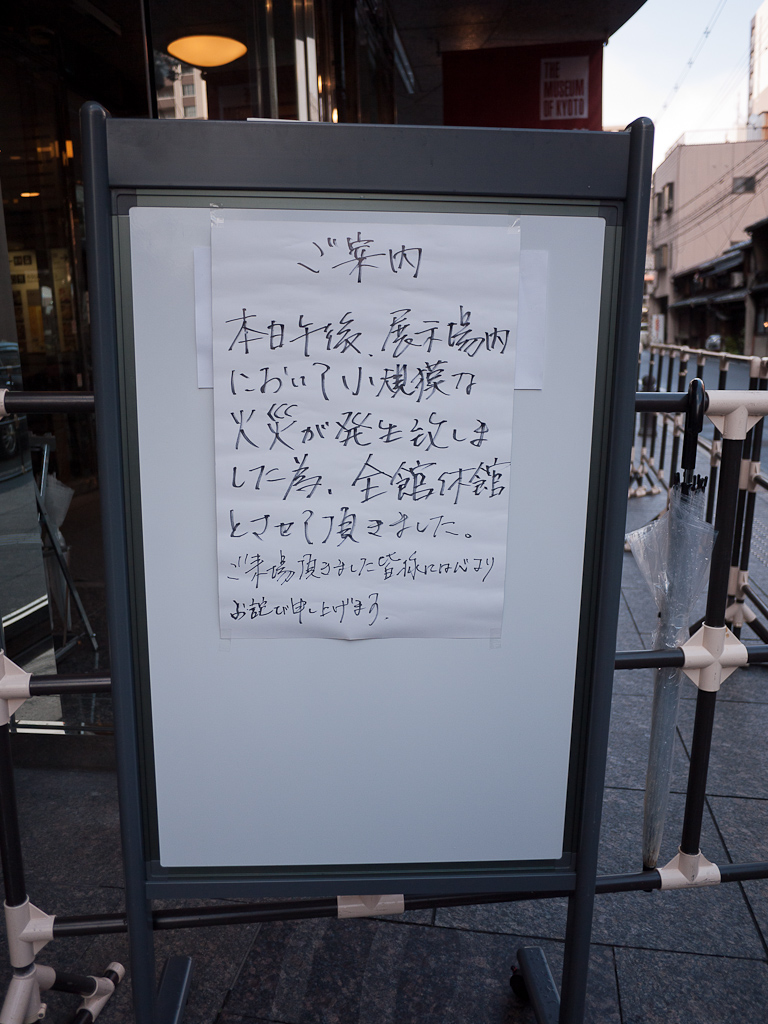 THE
MUSEUM
OF KYOTO
ご案内
本日午後、展示場内
において小規模な
火災が発生致しま
した為、全館休館
とさせて頂きました。
ご来場頂きました皆様には心より
お詫び申し上げます。